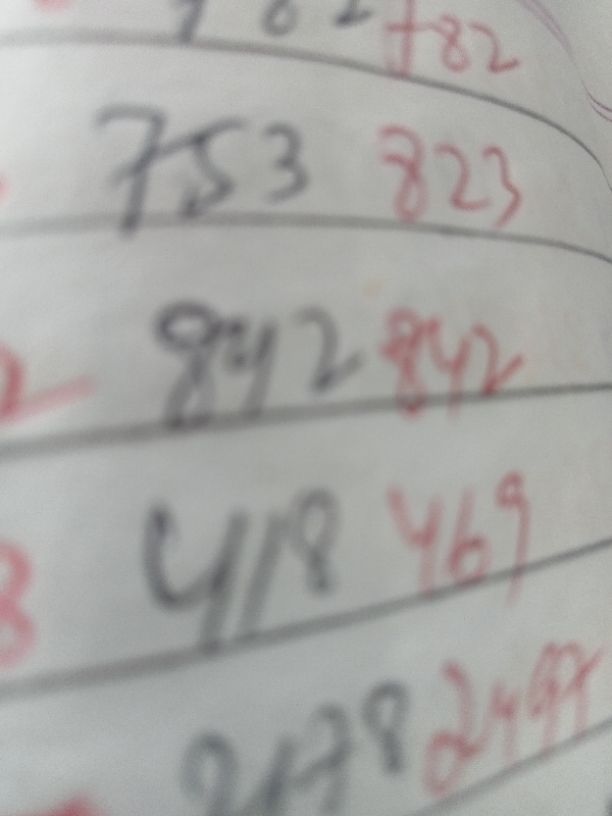 782
753 823
842 842
418 469
2178